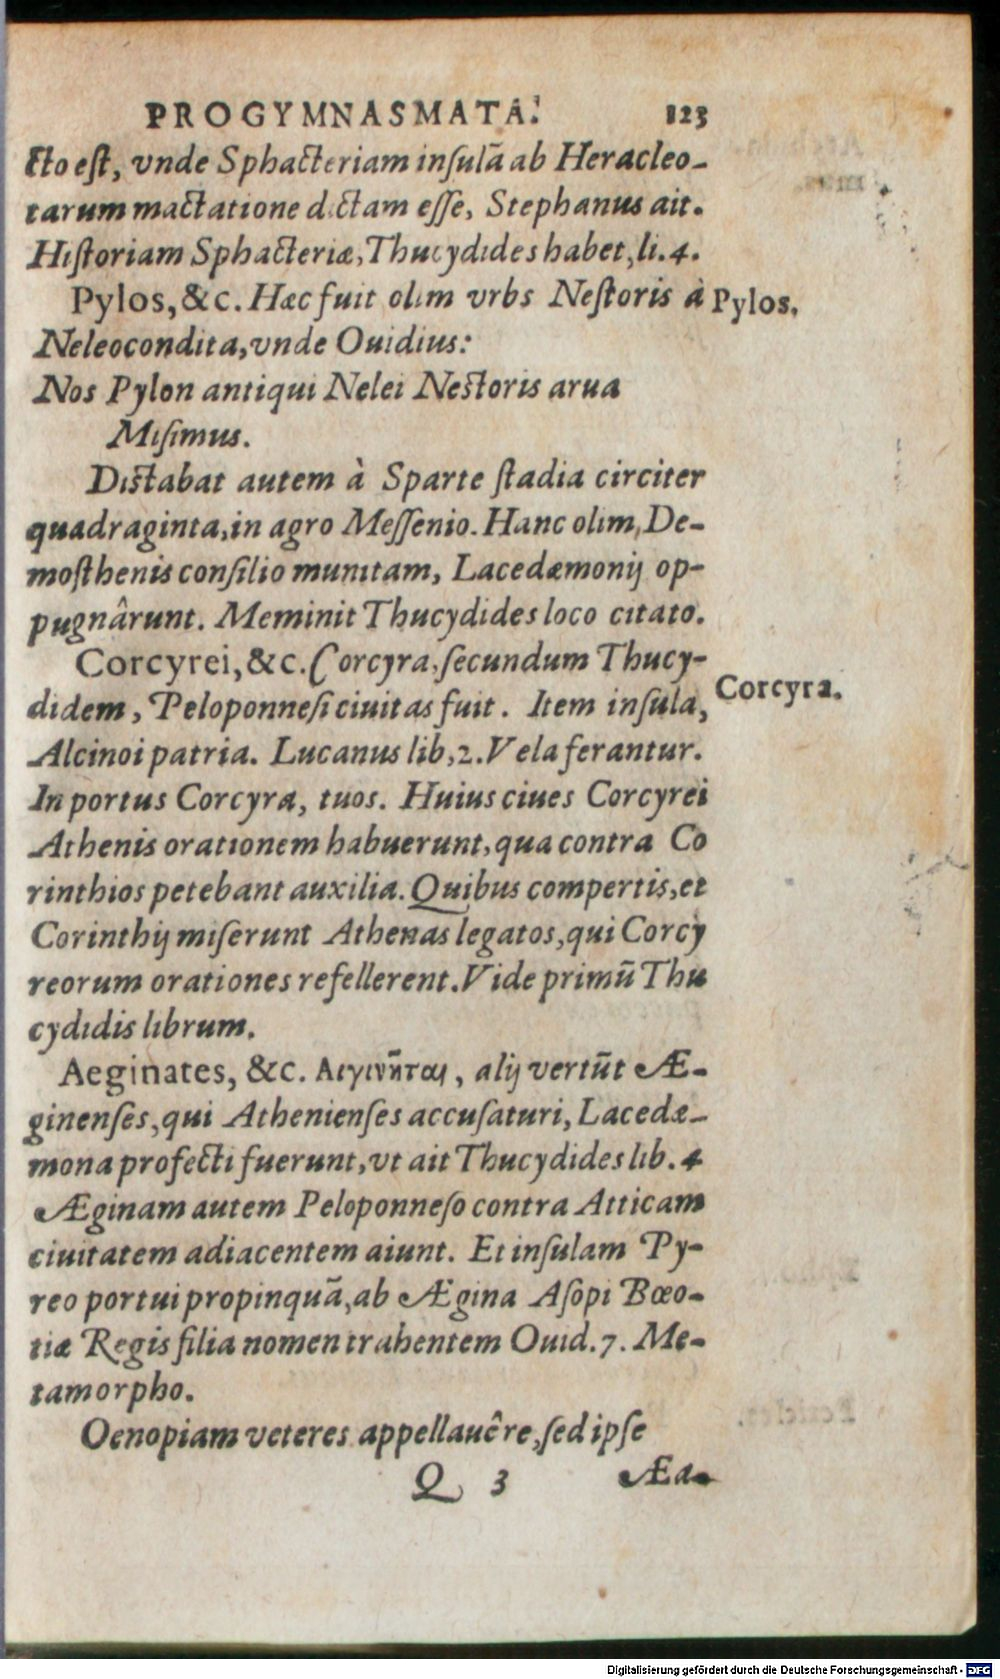 PROGYMNASMATA. 123
cto eſt, vnde Sphacteriam inſulā ab Heracleo-
tarum mactatione dictam eſſe, Stephanus ait.
Hiſtoriam Sphacteriæ, Thucydides habet, li. 4.
Pylos, &c. Hæc fuit olim vrbs Neſtoris à
Pylos.
Neleo condita, vnde Ouidius:
Nos Pylon antiqui Nelei Neſtoris arua
Miſimus.
Diſtabat autem à Sparte ſtadia circiter
quadraginta, in agro Meſſenio. Hanc olim, De-
moſthenis conſilio munitam, Lacedæmonij op-
pugnârunt. Meminit Thucydides loco citato.
Corcyrei, &c. Corcyra, ſecundum Thucy-
Corcyra.
didem, Peloponneſi ciuitas fuit. Item inſula,
Alcinoi patria. Lucanus lib, 2. Vela ferantur.
In portus Corcyra, tuos. Huius ciues Corcyrei
Athenis orationem habuerunt, qua contra Co
rinthios petebant auxilia. Quibus compertis, et
Corinthij miſerunt Athenas legatos, qui Corcy
reorum orationes refellerent. Vide primū Thu
cydidis librum.
Aeginates, &c. Αιγινῆται, alij vertūt Æ-
ginenſes, qui Athenienſes accuſaturi, Lacedæ-
mona profecti fuerunt, vt ait Thucydides lib. 4
Æginam autem Peloponneſo contra Atticam
ciuitatem adiacentem aiunt. Et inſulam Py-
reo portui propinquā, ab Ægina Aſopi Bœo-
tiæ Regis filia nomen trahentem Ouid. 7. Me-
tamorpho.
Oenopiam veteres appellauêre, ſed ipſe
Q 3 Æa-
Digitalisierung gefördert durch die Deutsche Forschungsgemeinschaft - DFG